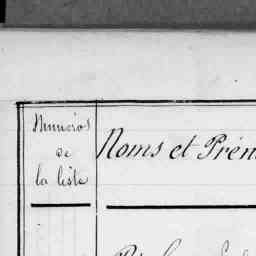 Numéros
de
la liste
Noms et Prén